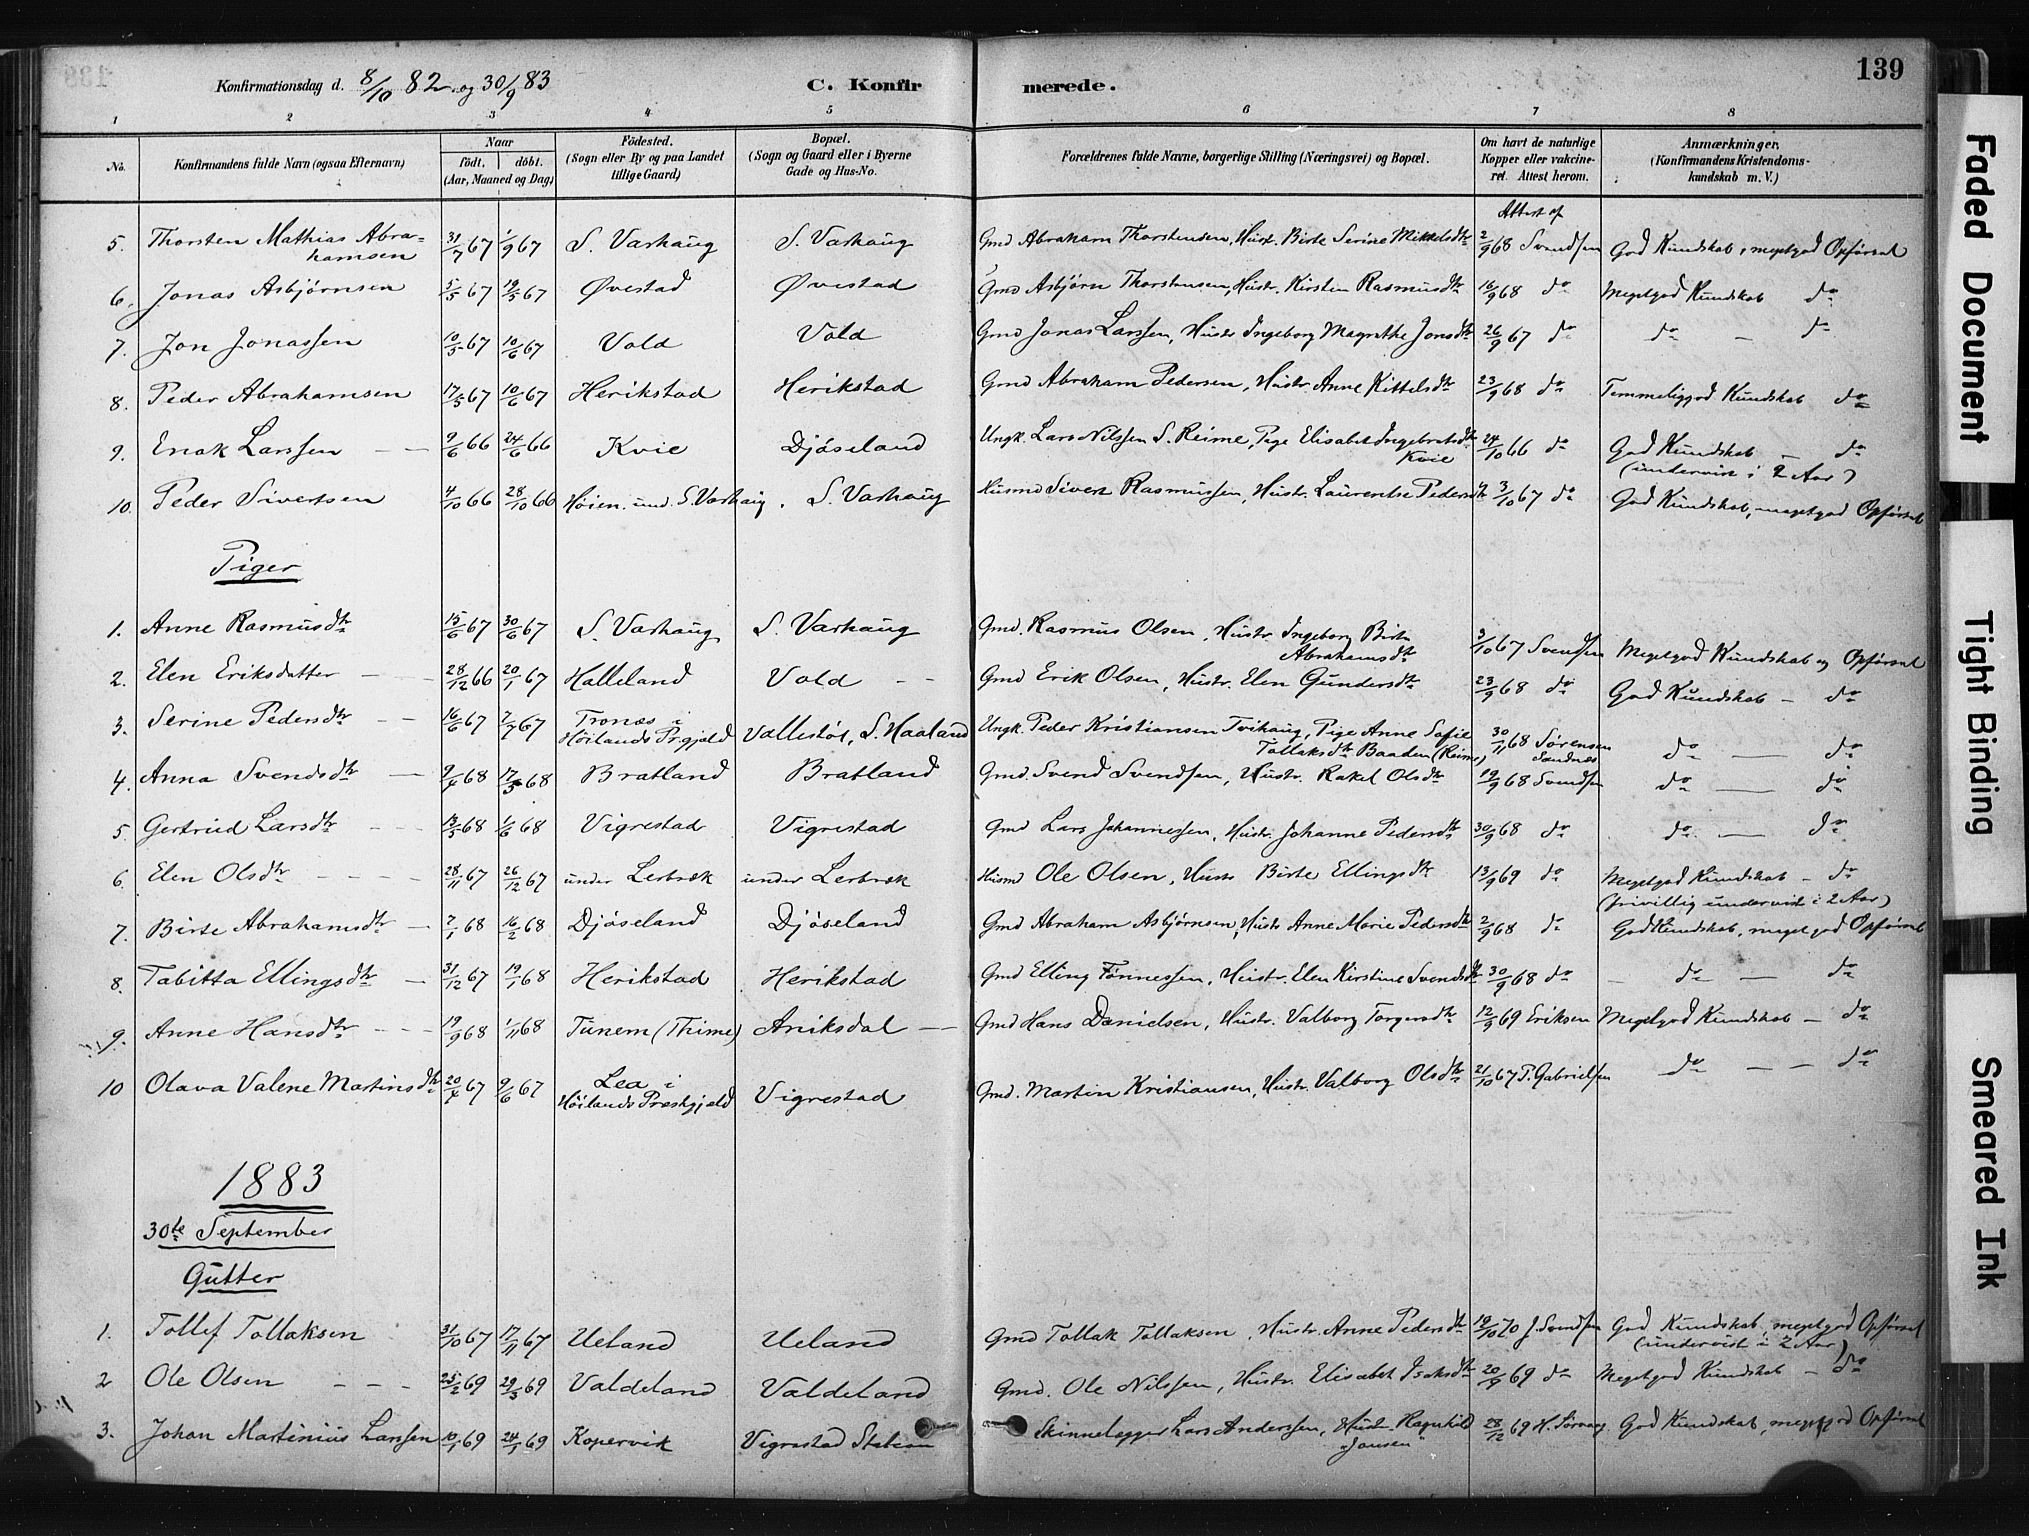 Konfirmationsdag d. 8/10 82 og 30/9 83 C. Konfirmerede. 139
1 2 3 4 5 6 7 8
No. Konfirmandens fulde Navn (ogsaa Efternavn) Naar födt. döbt. (Aar, Maaned og Dag) Födested. (Sogn eller By og paa Landet tillige Gaard) Bopæl. (Sogn og Gaard eller i Byerne Gade og Hus-No. Forældrenes fulde Navne, borgerlige Stilling (Næringsvei) og Bopæl. Om havt de naturlige Kopper eller vakcineret. Attest herom. Anmærkninger. (Konfirmandens Kristendomskundskab m. V.)
Attest af
5. Thorsten Mathias Abrahamsen 31/7 67 1/9 67 S. Varhaug S. Varhaug Gmd Abraham Thorstensen, Hustr. Birte Serine Mikkelsdtr 2/9 68 Svendsen God Kundskab, megetgod Opförsel
6. Jonas Asbjørnsen 5/5 67 19/5 67 Øvestad Øvestad Gmd Asbjörn Thorstensen, Hustr. Kirsten Rasmusdtr 16/9 68 do Megetgod Kundskab do
7. Jon Jonassen 10/5 67 10/6 67 Vold Vold Gmd Jonas Larssen, Hustr Ingeborg Magrethe Jonsdtr 26/9 67 do do – do
8. Peder Abrahamsen 17/5 67 10/6 67 Herikstad Herikstad Gmd Abraham Pedersen, Hustr. Anne Kittelsdtr 23/9 68 do Temmeliggod Kundskab do
9. Enok Larssen 9/6 66 24/6 66 Kvie Djøseland Ungk. Lars Nilssen S. Reime, Pige Elisabet Ingebretsdtr Kvie 24/10 66 do God Kundskab – do
(undervist i 2 Aar)
10. Peder Sivertsen 4/10 66 28/10 66 Høien. und. S. Varhaug. S. Varhaug Husmd Sivert Rasmussen, Hustr. Laurentse Pedersdtr 3/10 67 do God Kundskab, megetgod Opförsel
Piger
1. Anne Rasmusdtr 15/6 67 30/6 67 S. Varhaug S. Varhaug Gmd. Rasmus Olsen, Hustr. Ingeborg Birte Abrahamsdtr 3/10 67 Svendsen Megetgod Kundskab og Opförsel
2. Elen Eriksdatter 28/12 66 20/1 67 Halleland Vold Gmd Erik Olsen, Hustr. Elen Gundersdtr 23/9 68 do God Kundskab – do
3. Serine Pedersdtr 16/6 67 7/7 67 Tronæs i Höilands Pr.gjæld Vallestøl, S. Haaland Ungk. Peder Kristiansen Tvihaug, Pige Anne Sofie Tollaksdtr Baaden (Reime) 30/11 68 Sørensen Sandnæs do – do
4. Anna Svendsdtr 9/4 68 17/5 68 Bratland Bratland Gmd. Svend Svendsen, Hustr. Rakel Olsdtr 19/9 68 Svendsen do – do
5. Gertrud Larsdtr 13/5 68 1/6 68 Vigrestad Vigrestad Gmd Lars Johannessen, Hustr. Johanne Pedersdtr 30/9 68 do do – do
6. Elen Olsdtr 28/11 67 26/12 67 under Lerbræk under Lerbræk Husmd Ole Olsen, Hustr Birte Ellingsdtr 13/9 69 do Megetgod Kundskab – do
(frivillig undervist i 2 Aar)
7. Birte Abrahamsdtr 7/1 68 16/2 68 Djøseland Djøseland Gmd Abraham Asbjørnsen, Hustr Anne Marie Pedersdtr 2/9 68 do God Kundskab, meget god Opförsel
8. Tabitta Ellingsdtr 31/12 67 19/1 68 Herikstad Herikstad Gmd Elling Tönnessen, Hustr. Elen Kirstine Svendsdtr 30/9 68 do – do – do
9. Anne Hansdtr 19/9 68 1/11 68 Tunem (Thime) Aniksdal Gmd Hans Danielsen, Hustr. Valborg Torgersdtr 12/9 69 Eriksen Megetgod Kundskab – do
10 Olava Valene Martinsdtr 20/4 67 9/6 67 Lea i Höilands Præstgjæld Vigrestad Gmd. Martin Kristiansen, Hustr. Valborg Olsdtr 21/10 67 P. Gabrielsen do – – do
1883
30te September
Gutter
1. Tollef Tollaksen 31/10 67 17/11 67 Ueland Ueland Gmd Tollak Tollaksen, Hustr. Anne Pedersdtr 19/10 70 J. Svendsen God Kundskab, megetgod Opförsel
(undervist i 2 Aar)
2 Ole Olsen 25/2 69 29/3 69 Valdeland Valdeland Gmd. Ole Nilssen, Hustr. Elisabet Isaksdtr 20/9 69 do Megetgod Kundskab – do
3. Johan Martinius Larssen 10/1 69 24/1 69 Kopervik Vigrestad Station Skinnelægger Lars Anderssen, Hustr Ragnhild "Jansen" 28/12 69 H. God Kundskab, megetgod Opförsel
Faded Document
Tight Binding
Smeared Ink